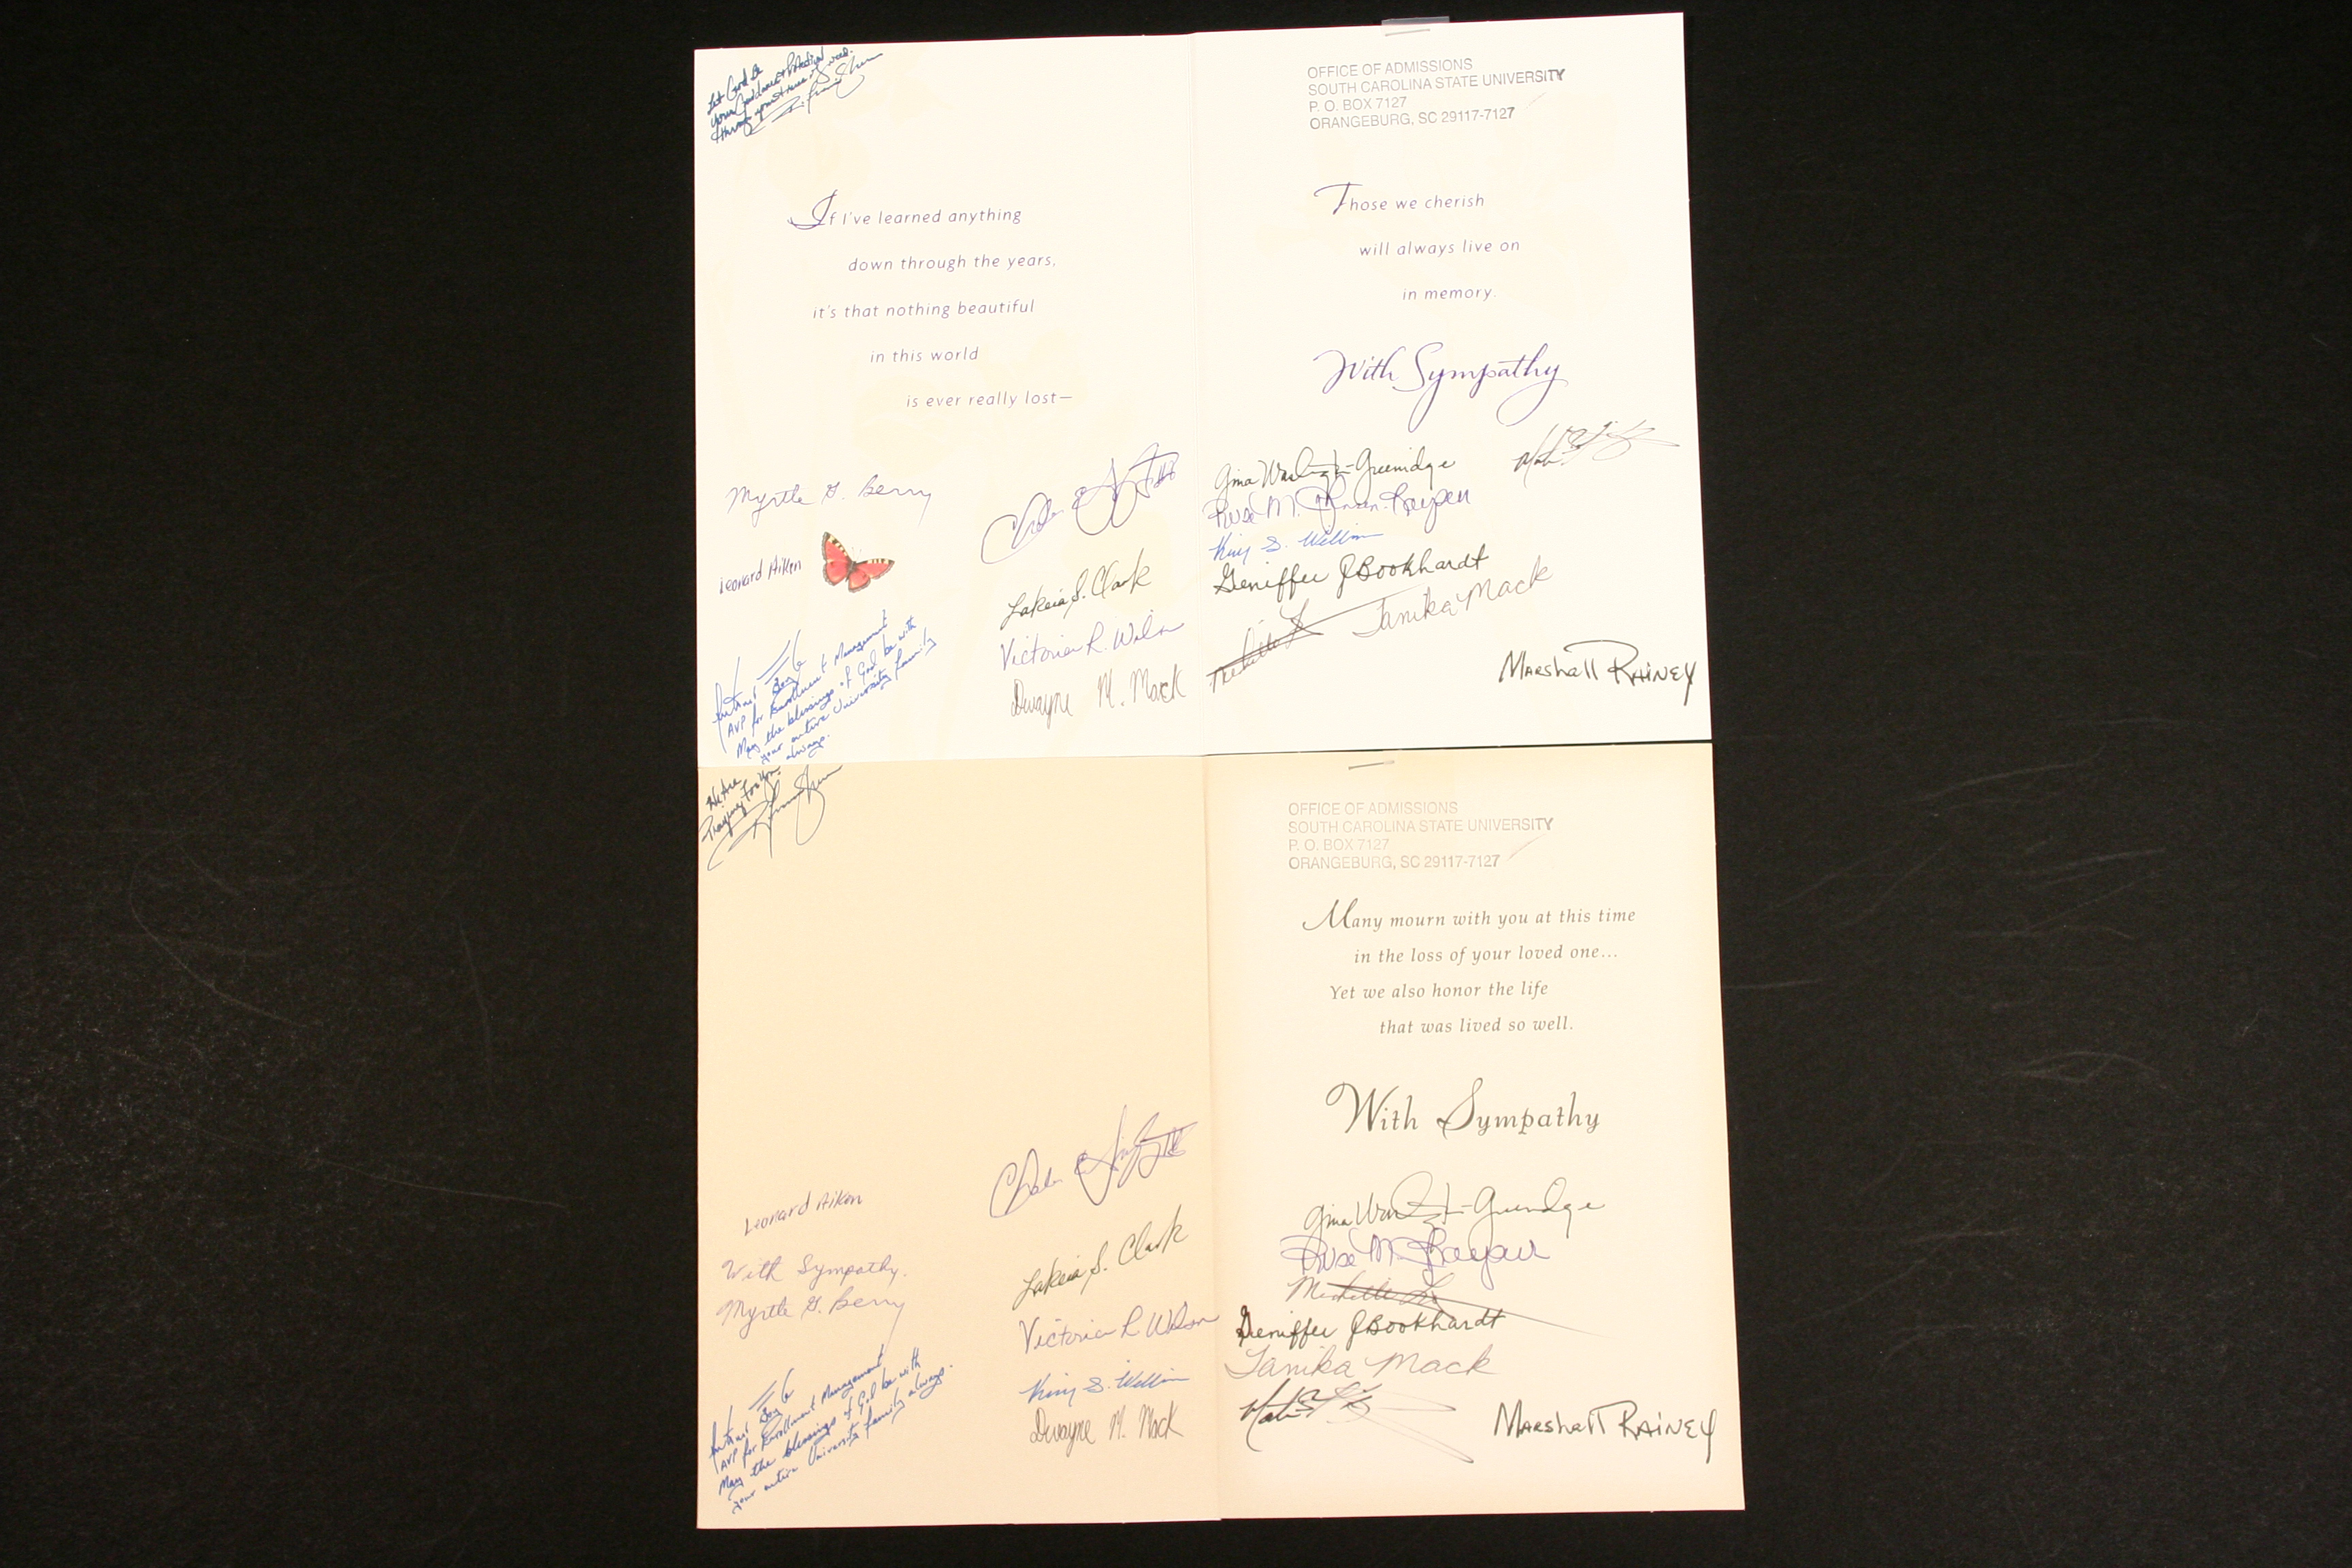 Let God Be
your Guidance & Protection
through your time of need.
If I've learned anything
down through the years,
it's that nothing beautiful
in this world
is ever really lost—
Myrtle G. Berry
Leonard Aiken
Lakeia S. Clark
Victoria R. Wilson
Dwayne M. Mack
AVP for Enrollment Management
May the blessings of God be with
your entire University family
always.
OFFICE OF ADMISSIONS
SOUTH CAROLINA STATE UNIVERSITY
P. O. BOX 7127
ORANGEBURG, SC 29117-7127
Those we cherish
will always live on
in memory.
With Sympathy
Gina Greenidge
Rose M.
King S.
Geniffer J Bookhardt
Tanika Mack
Marshall Rainey
We Are
Praying For You.
Leonard Aiken
With Sympathy.
Myrtle G. Berry
Lakeia S. Clark
Victoria R Wilson
King S.
Dwayne M. Mack
AVP for Enrollment Management
May the blessings of God be with
your entire University family always.
OFFICE OF ADMISSIONS
SOUTH CAROLINA STATE UNIVERSITY
P. O. BOX 7127
ORANGEBURG, SC 29117-7127
Many mourn with you at this time
in the loss of your loved one...
Yet we also honor the life
that was lived so well.
With Sympathy
Gina Greenidge
Rose M.
Michelle
Geniffer J Bookhardt
Tanika Mack
Marshall Rainey